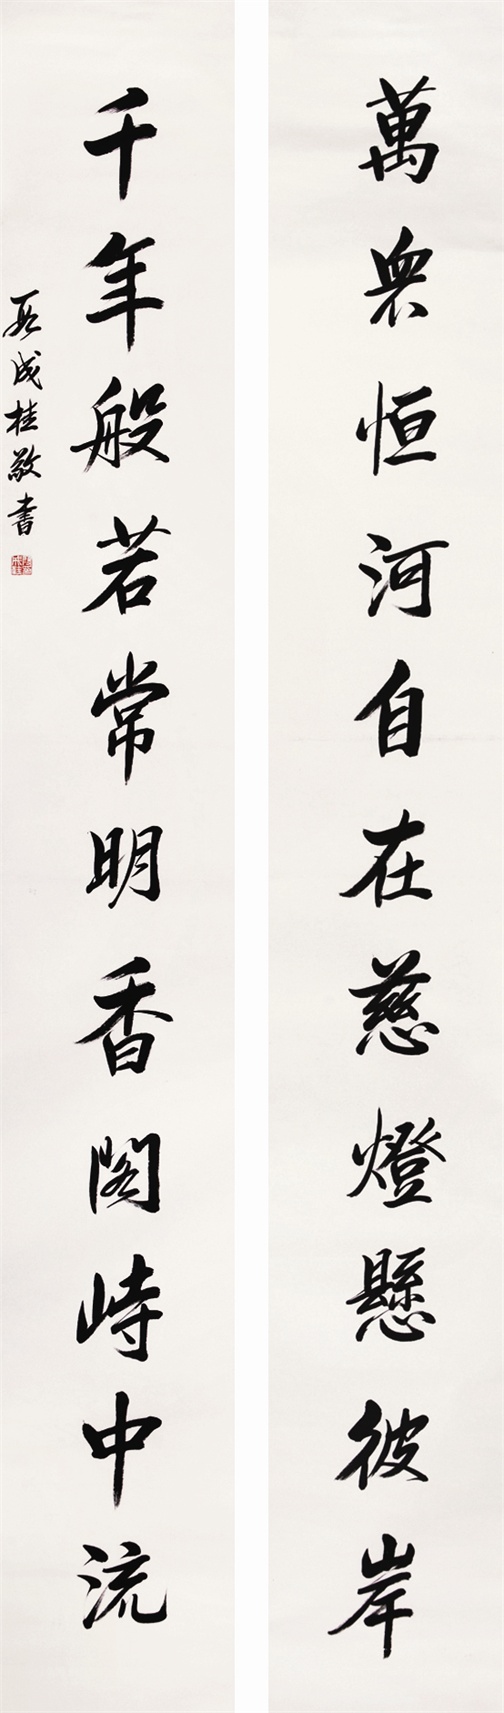 萬眾恒河自在慈燈懸彼岸
千年般若常明香閣峙中流
段成桂敬書